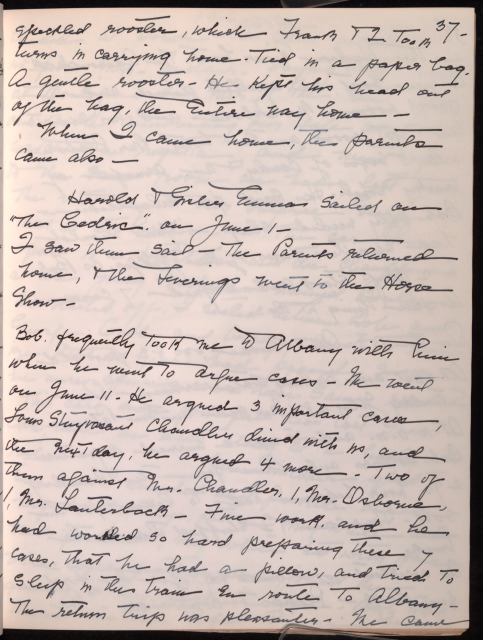 37-
speckled rooster, which Frank & I took
turns in carrying home. Tied in a paper bag.
A gentle rooster - He kept his head out
of the bag, the entire way home -
When I came home, the parents
came also -
Harold & Emmons sailed on
"The Cedric". on June 1 -
I saw them sail - The Parents returned
home, & the Leverings went to the Horse
Show -
Bob. frequently took me to Albany with him
when he went to argue cases - We went
on June 11 - He argued 3 important cases,
Louis Stuyvesant Chandler dined with us, and
the next day, he argued 4 more. Two of
them against Mr. Chandler, 1, Mr. Osborne,
1, Mr. Lauterbach - Fine work, and he
had worked so hard preparing these 7
cases, that he had a pillow, and tried to
sleep in the train en route to Albany -
The return trip was pleasanter - We came